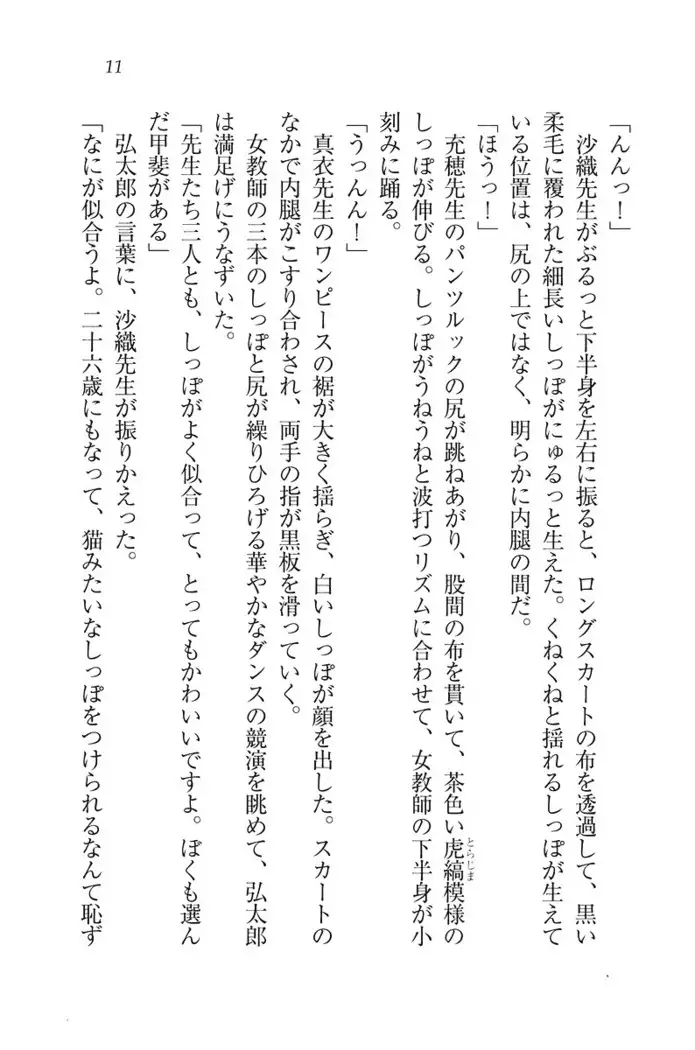 11
「んんっ！」
沙織先生がぶるっと下半身を左右に振ると、ロングスカートの布を透過して、黒い
柔毛に覆われた細長いしっぽがにゅるっと生えた。くねくねと揺れるしっぽが生えて
いる位置は、尻の上ではなく、明らかに内腿の間だ。
「ほうっ！」
充穂先生のパンツルックの尻が跳ねあがり、股間の布を貫いて、茶色い虎縞模様の
とらじま
しっぽが伸びる。しっぽがうねうねと波打つリズムに合わせて、女教師の下半身が小
刻みに踊る。
「うっんん！」
真衣先生のワンピースの裾が大きく揺らぎ、白いしっぽが顔を出した。スカートの
なかで内腿がこすり合わされ、両手の指が黒板を滑っていく。
女教師の三本のしっぽと尻が繰りひろげる華やかなダンスの競演を眺めて、弘太郎
は満足げにうなずいた。
「先生たち三人とも、しっぽがよく似合って、とってもかわいいですよ。ぼくも選ん
だ甲斐がある」
弘太郎の言葉に、沙織先生が振りかえった。
「なにが似合うよ。二十六歳にもなって、猫みたいなしっぽをつけられるなんて恥ず